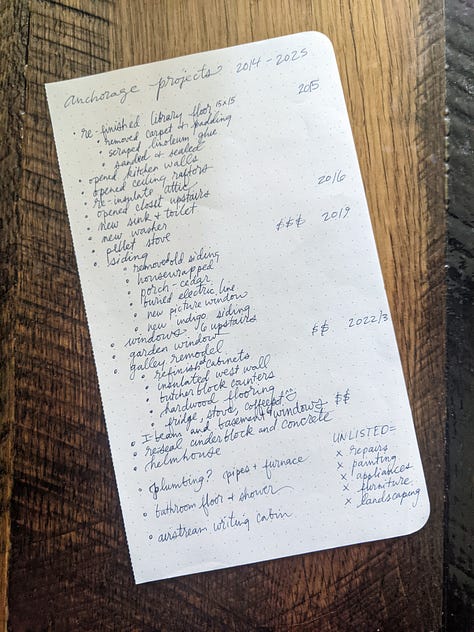 anchorage projects 2014-2025
2015
• re-finished library floor 15x15
• removed carpet & padding
• scraped linoleum glue
• sanded & sealed
• opened kitchen walls
• opened ceiling raftors
• re-insulate attic
• opened closet upstairs 2016
• new sink & toilet
• new washer
• pellet stove
• siding $$$ 2019
• removed old siding
• housewrapped
• porch-cedar
• buried electric line
• new picture window
• new indigo siding
• windows 6 upstairs
• garden window
• galley remodel $$ 2022/3
• refinish cabinets
• insulated west wall
• butcher block counters
• hardwood flooring
• fridge, stove, coffeepot
• I beam and basement windows $$
• reseal cinderblock and concrete
• helmhouse
• plumbing? pipes + furnace
• bathroom floor & shower
• airstream writing cabin
UNLISTED=
x repairs
x painting
x appliances
x furniture
x landscaping